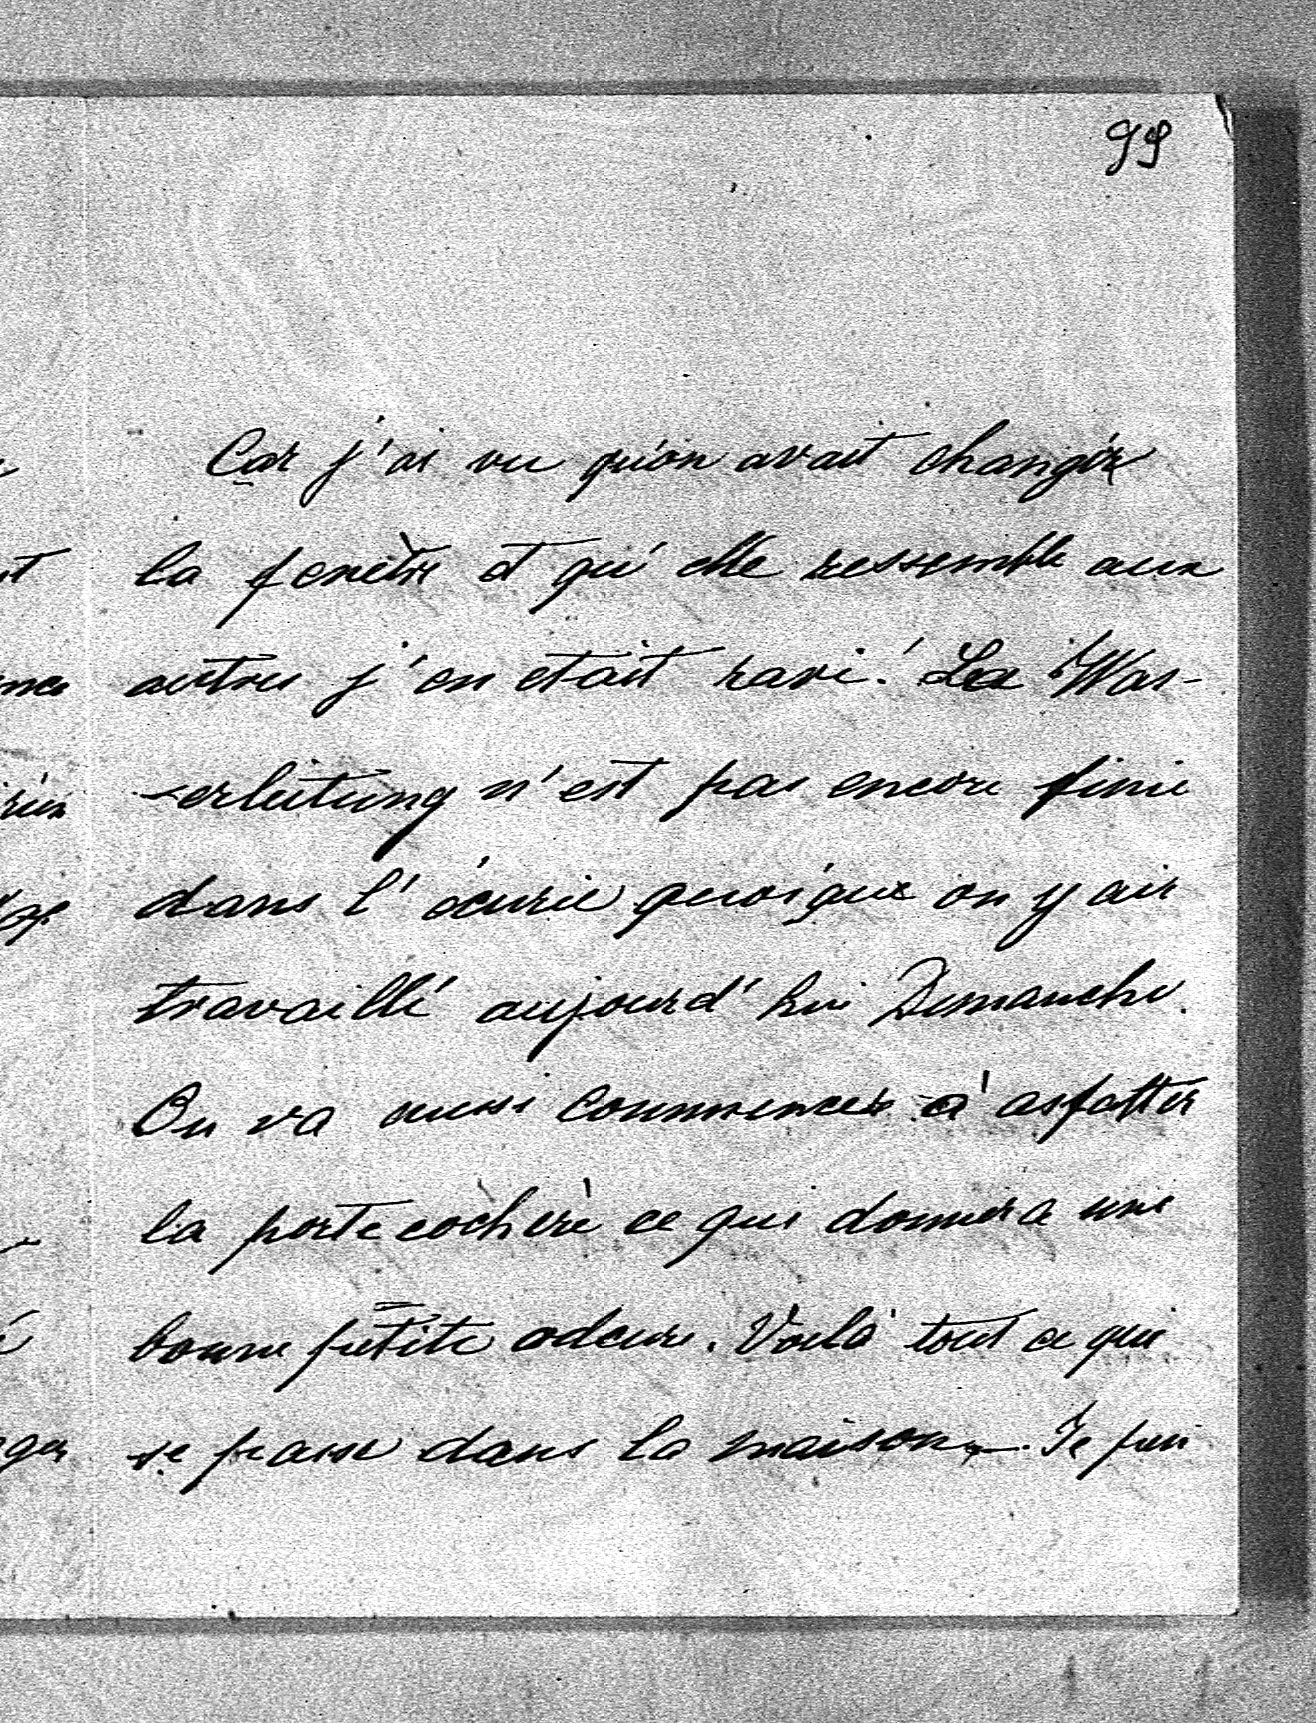 99
Car j'ai vu qu'on avait changér
la fenètre et qu'elle ressemble aux
autres j'en etait ravi! La Was-
serleitung n'est pas encore finie
dans l'écurie quoique on y air
travaillé aujourd'hui Dimanche.
On va aussi commencer à asfalter
la porte cochère ce qui donnera une
bonne petite odeure. Voilà tout ce qui
se passe dans la maison. Je fus